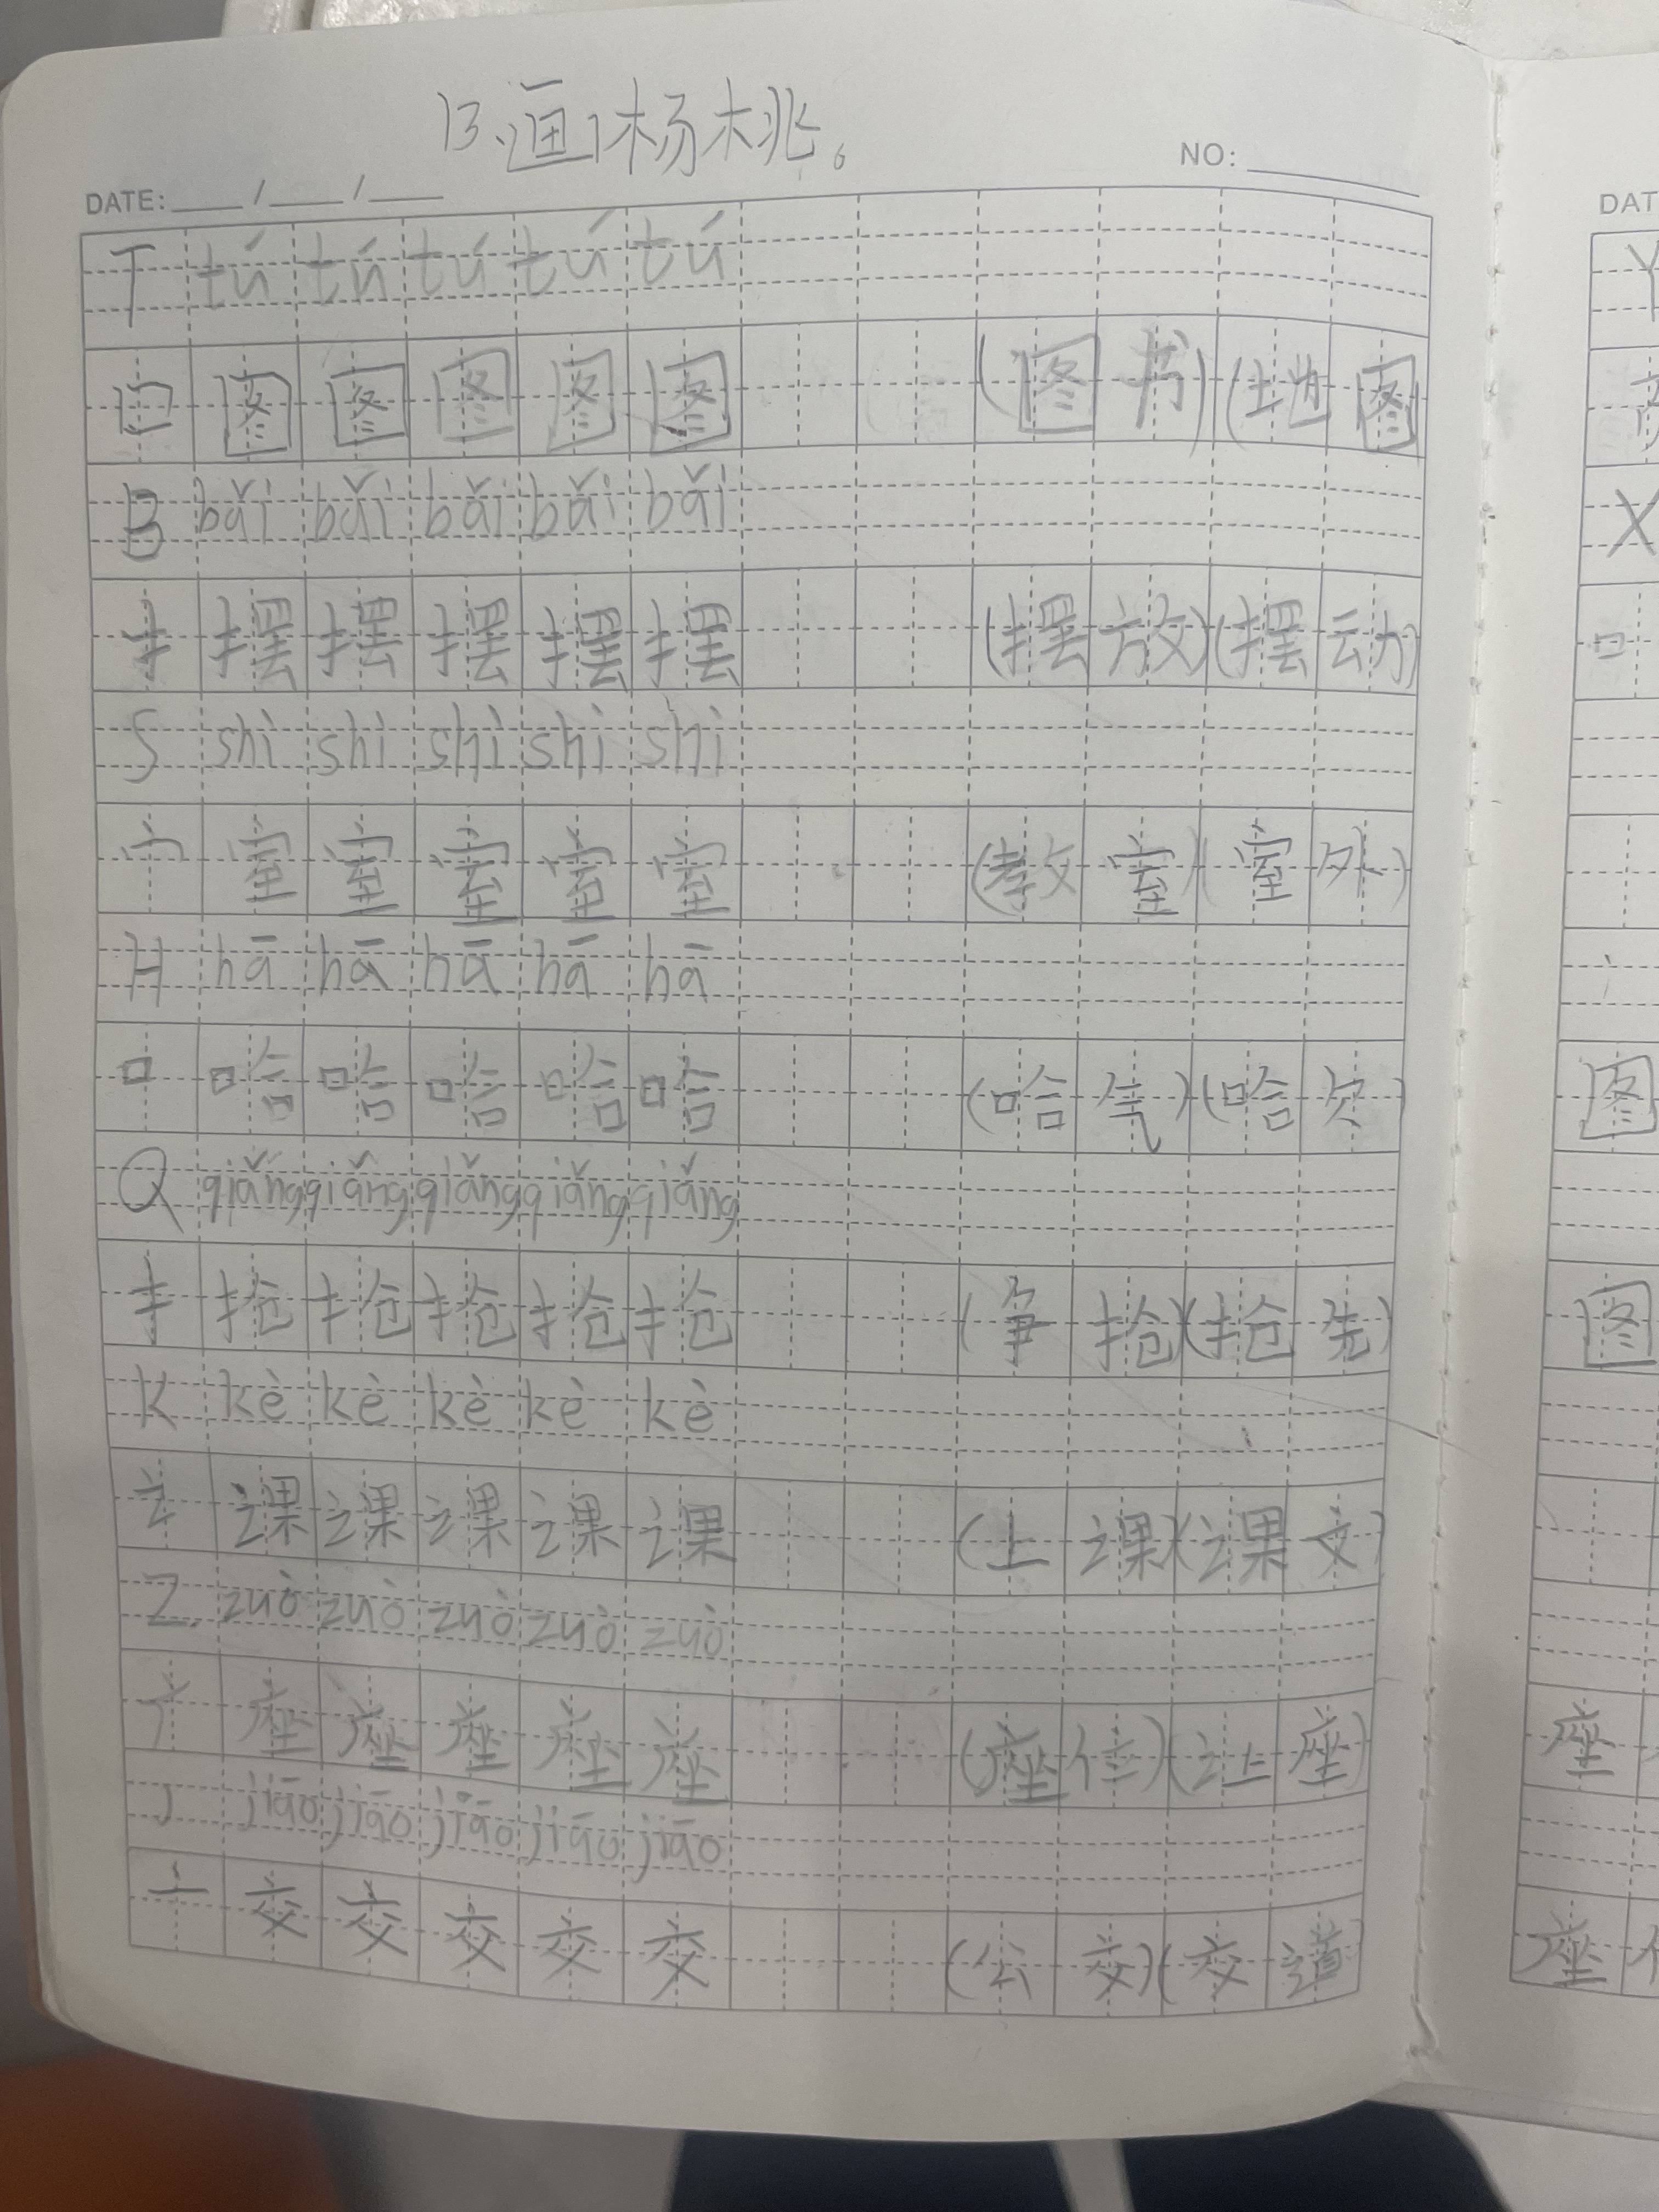 13、画杨桃。
DATE: / / NO:
T tú tú tú tú tú
囗 图 图 图 图 图 (图书)(地图
B bǎi bǎi bǎi bǎi bǎi
扌 摆 摆 摆 摆 摆 (摆放)(摆动)
S shi shi shi shi shi
宀 室 室 室 室 室 (教室)(室外)
H hā hā hā hā hā
口 哈 哈 哈 哈 哈 (哈气)(哈欠)
Q qiǎng qiǎng qiǎng qiǎng qiǎng
扌 抢 抢 抢 抢 抢 (争抢)(抢先)
K kè kè kè kè kè
讠 课 课 课 课 课 (上课)(课文)
Z zuò zuò zuò zuò zuò
广 座 座 座 座 座 (座位)(让座)
J jiāo jiāo jiāo jiāo jiāo
亠 交 交 交 交 交 (公交)(交道
DAT
Y
X
口
图
图
座
座